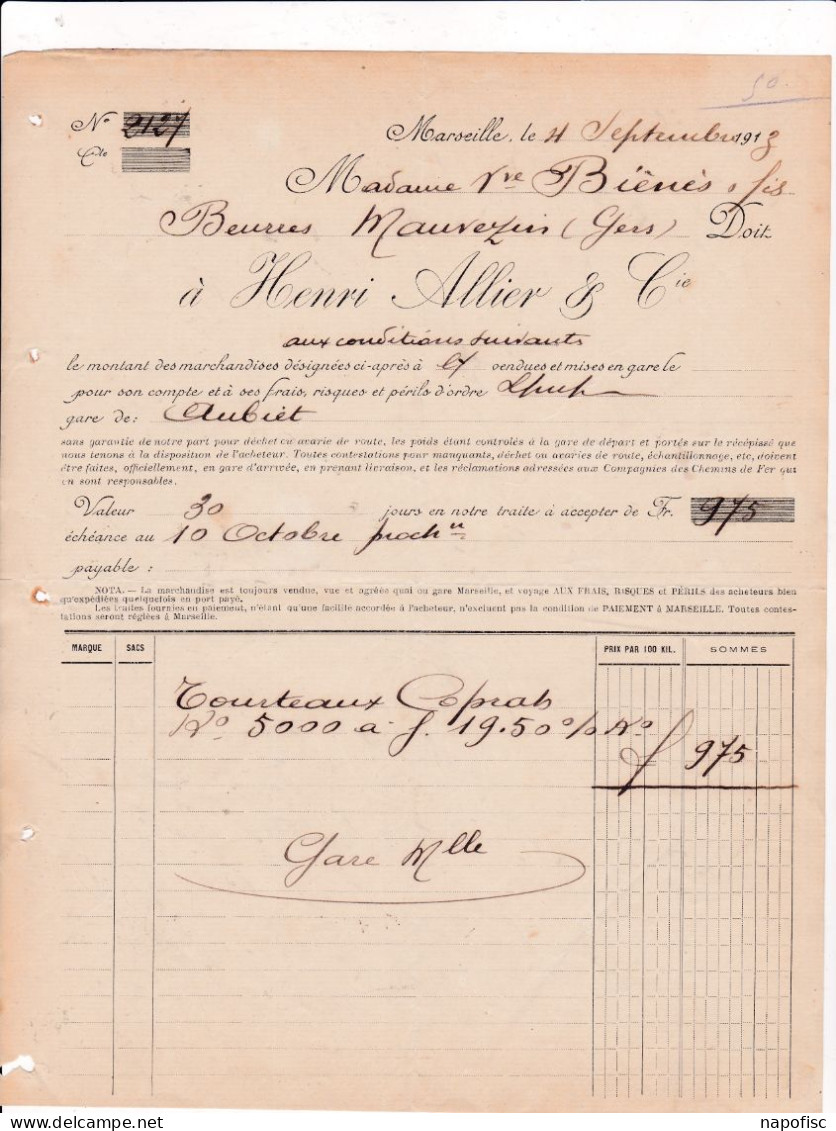 50
Nº 2127
Cde
Marseille, le 4 Septembre 1913
Madame Vve Biénès & fils
Beurres Mauvezin (Gers) Doit
à Henri Allier & Cie
aux conditions suivants
le montant des marchandises désignées ci-après à vendues et mises en gare le
pour son compte et à ses frais, risques et périls d'ordre
gare de: Aubiet
sans garantie de notre part pour déchet ou avarie de route, les poids étant contrôlés à la gare de départ et portés sur le récépissé que
nous tenons à la disposition de l'acheteur. Toutes contestations pour manquants, déchet ou avaries de route, échantillonnage, etc, doivent
être faites, officiellement, en gare d'arrivée, en prenant livraison, et les réclamations adressées aux Compagnies des Chemins de Fer qui
en sont responsables.
Valeur 30 jours en notre traite à accepter de Fr. 975
échéance au 10 Octobre proch n
payable :
NOTA. — La marchandise est toujours vendue, vue et agréée quai ou gare Marseille, et voyage AUX FRAIS, RISQUES et PÉRILS des acheteurs bien
qu'expédiées quelquefois en port payé.
Les traites fournies en paiement, n'étant qu'une facilité accordée à l'acheteur, n'excluent pas la condition de PAIEMENT à MARSEILLE. Toutes contes-
tations seront réglées à Marseille.
MARQUE SACS PRIX PAR 100 KIL. SOMMES
Tourteaux Coprah
Ko 5000 a f. 19.50 % Ko
f 975
Gare Mlle
delcampe.net
napofisc